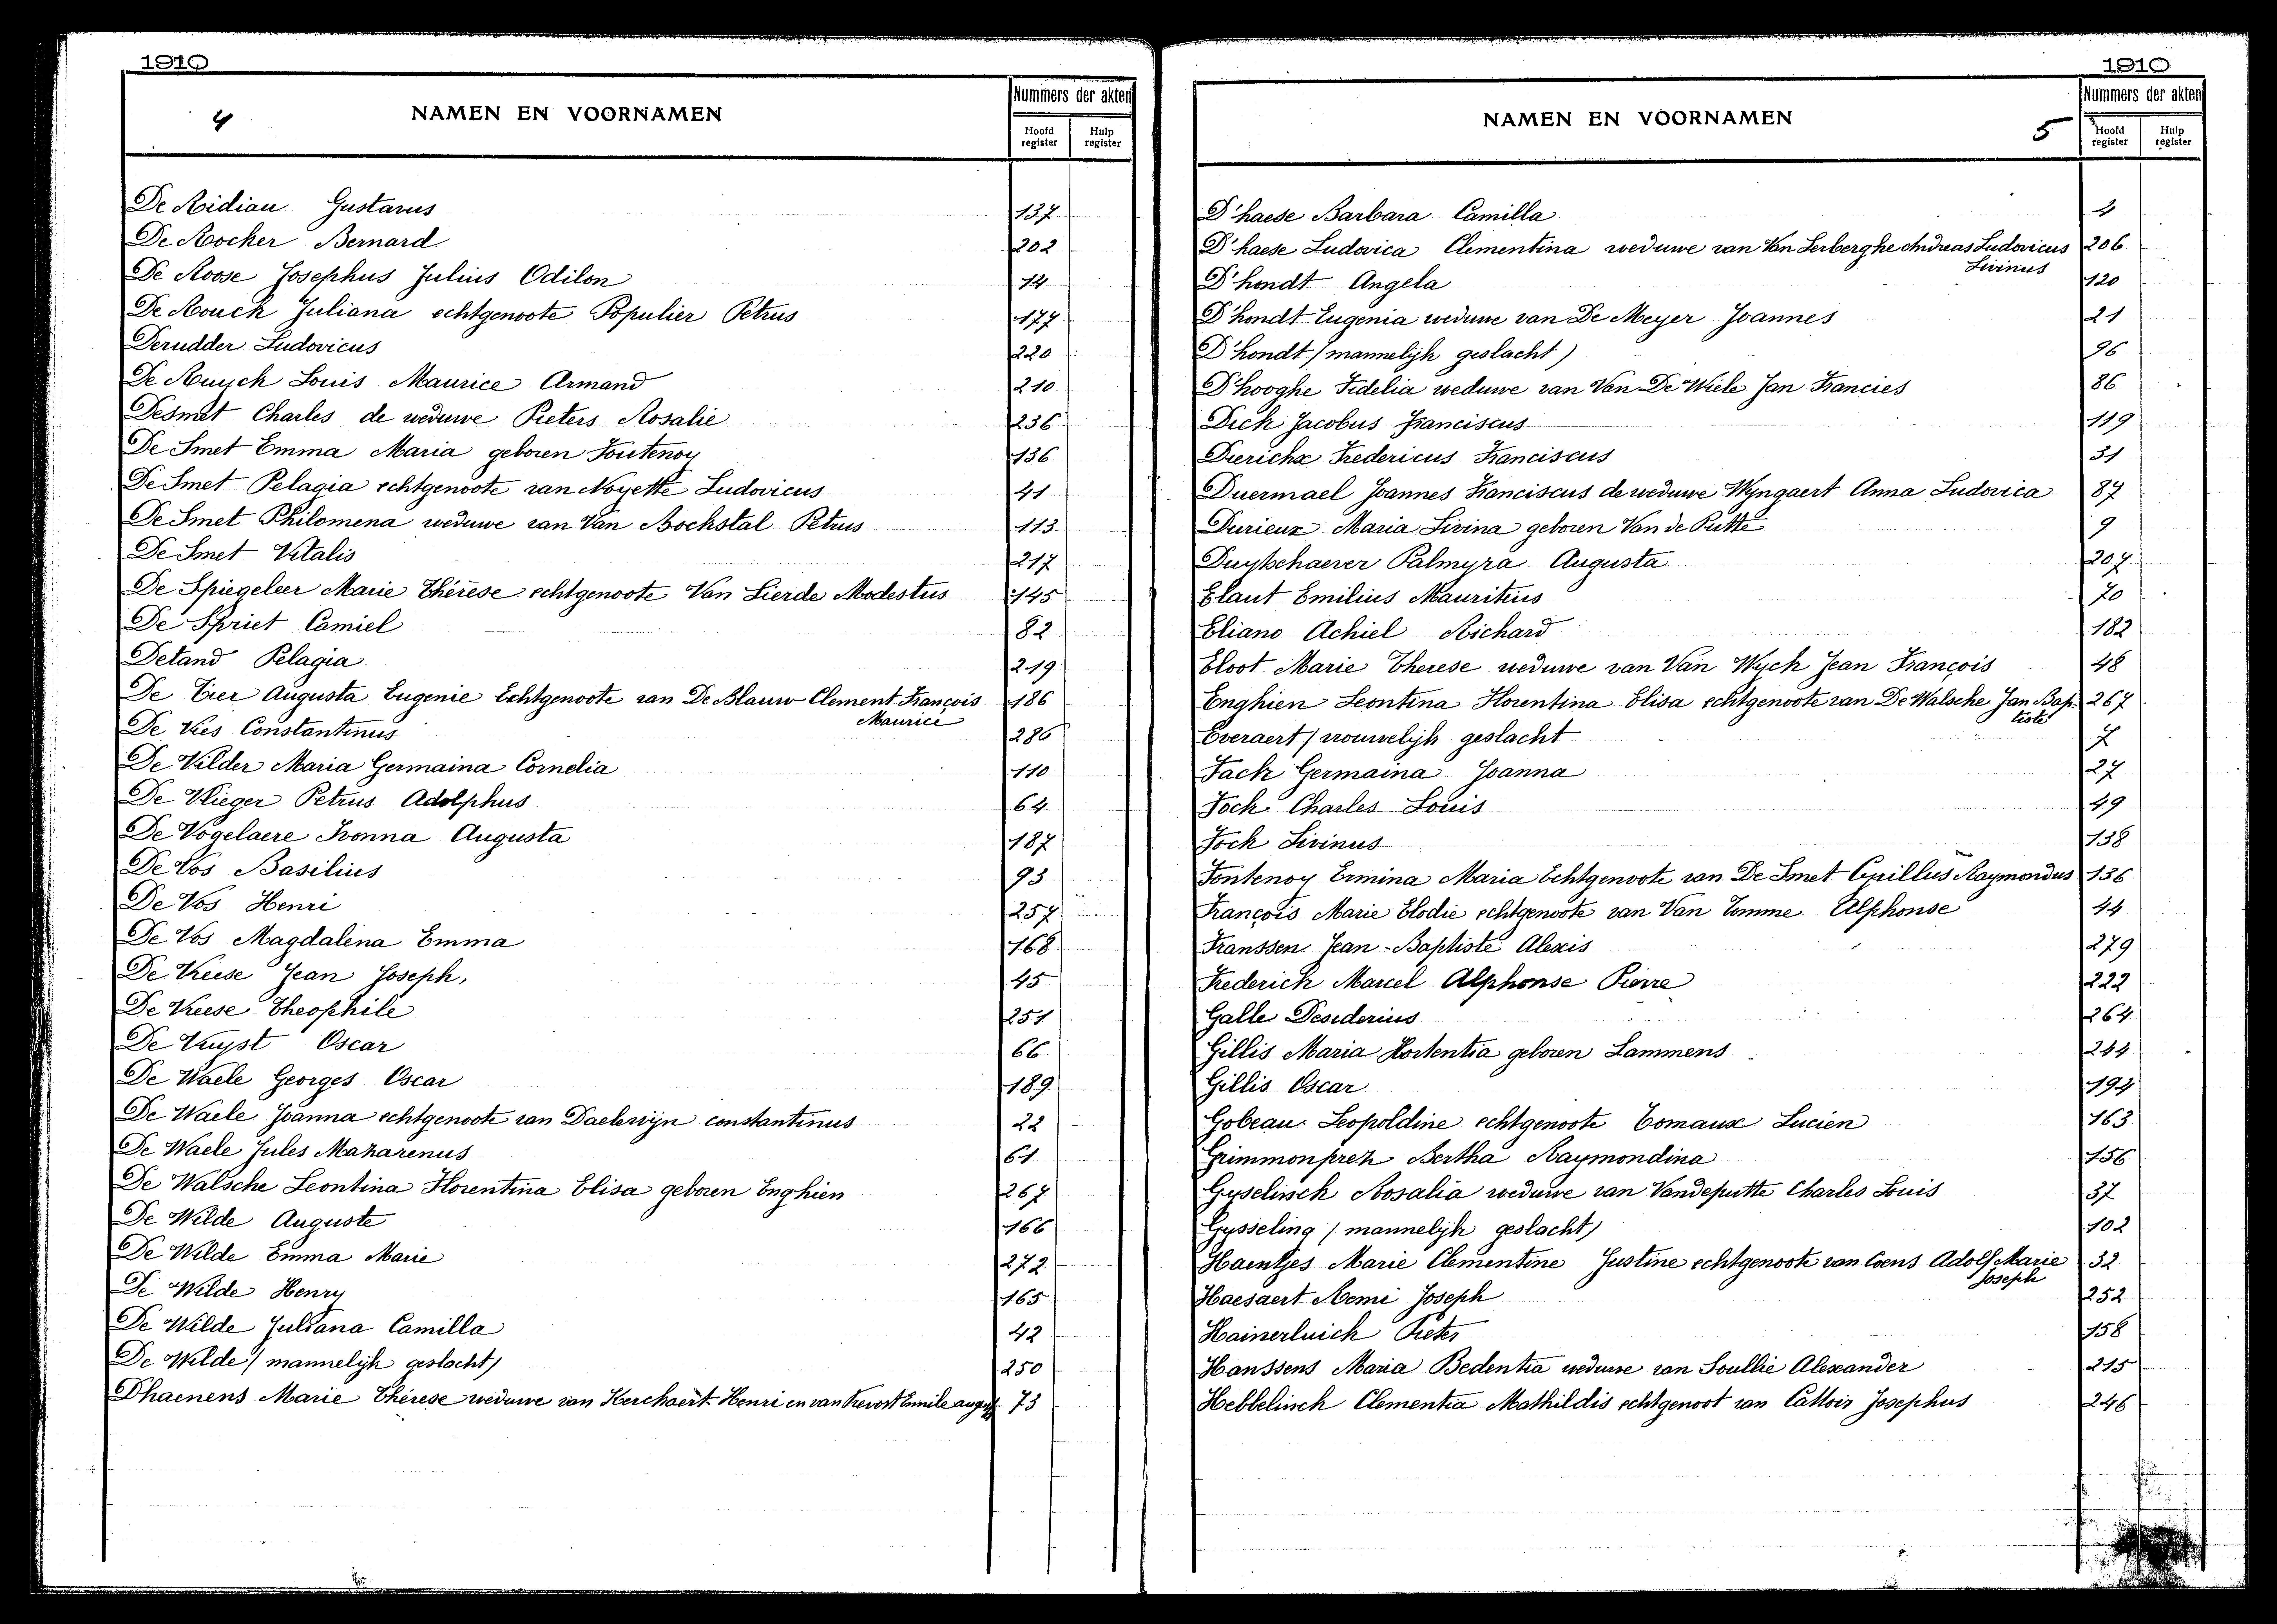 1910
4
NAMEN EN VOORNAMEN
Nummers der akten
Hoofd register
Hulp register
De Ridiau Gustavus 137
De Rocker Bernard 202
De Roose Josephus Julius Odilon 14
De Rouck Juliana echtgenoote Populier Petrus 177
Derudder Ludovicus 220
De Ruyck Louis Maurice Armand 210
Desmet Charles de weduwe Pieters Rosalie 236
De Smet Emma Maria geboren Fontenoy 136
De Smet Pelagia echtgenoote van Noyette Ludovicus 41
De Smet Philomena weduwe van Van Bockstal Petrus 113
De Smet Vitalis 217
De Spiegeleer Marie Thérèse echtgenoote Van Lierde Modestus 145
De Spriet Camiel 82
Detand Pelagia 219
De Tier Augusta Eugenie Echtgenoote van De Blauw Clement François 186
Maurice
De Vies Constantinus 286
De Vilder Maria Germaina Cornelia 110
De Vlieger Petrus Adolphus 64
De Vogelaere Ivonna Augusta 187
De Vos Basilius 93
De Vos Henri 257
De Vos Magdalena Emma 168
De Vreese Jean Joseph, 45
De Vreese Theophile 251
De Vuyst Oscar 66
De Waele Georges Oscar 189
De Waele Joanna echtgenoote van Daelewijn constantinus 22
De Waele Jules Mazarenus 61
De Walsche Leontina Florentina Elisa geboren Enghien 267
De Wilde Auguste 166
De Wilde Emma Marie 272
De Wilde Henry 165
De Wilde Juliana Camilla 42
De Wilde (mannelijk geslacht) 250
Dhaenens Marie Thérese weduwe van Kerchaert Henri en van Emile 73
1910
NAMEN EN VOORNAMEN
5
Nummers der akten
Hoofd register
Hulp register
D'haese Barbara Camilla 4
D'haese Ludovica Clementina weduwe van Van Lerberghe Andreas Ludovicus 206
Livinus
D'hondt Angela 120
D'hondt Eugenia weduwe van De Meyer Joannes 21
D'hondt (mannelijk geslacht) 96
D'hooghe Fidelia weduwe van Van De Wiele Jan Francies 86
Dick Jacobus Franciscus 119
Dierickx Fredericus Franciscus 31
Duermael Joannes Franciscus de weduwe Wyngaert Anna Ludovica 87
Durieux Maria Livina geboren Van de Putte 9
Duytschaever Palmyra Augusta 207
Elaut Emilius Mauritius 70
Eliano Achiel Richard 182
Eloot Marie Therese weduwe van Van Wyck Jean François 48
Enghien Leontina Florentina Elisa echtgenoote van De Walsche Jan Bap. 267
tiste
Everaert (vrouwelijk geslacht 7
Fack Germaina Joanna 27
Fock Charles Louis 49
Fock Livinus 138
Fontenoy Ermina Maria Echtgenoote van De Smet Cyrillus Raymondus 136
François Marie Elodie echtgenoote van Van Tomme Alphonse 44
Franssen Jean-Baptiste Alexis 279
Frederick Marcel Alphonse Pierre 222
Galle Desiderius 264
Gillis Maria Hortentia geboren Lammens 244
Gillis Oscar 194
Gobeau Leopoldine echtgenoote Tomaux Lucien 163
Grimmonprez Bertha Raymondina 156
Gyselinck Rosalia weduwe van Vandeputte Charles Louis 37
Gysseling (mannelijk geslacht) 102
Haentjes Marie Clementine Justine echtgenoote van Coens Adolf Marie 32
Joseph
Haesaert Remi Joseph 252
Hainerluick Pieter 158
Hanssens Maria Bedentia weduwe van Soullie Alexander 215
Hebbelinck Clementia Mathildis echtgenoot van Cattoir Josephus 246